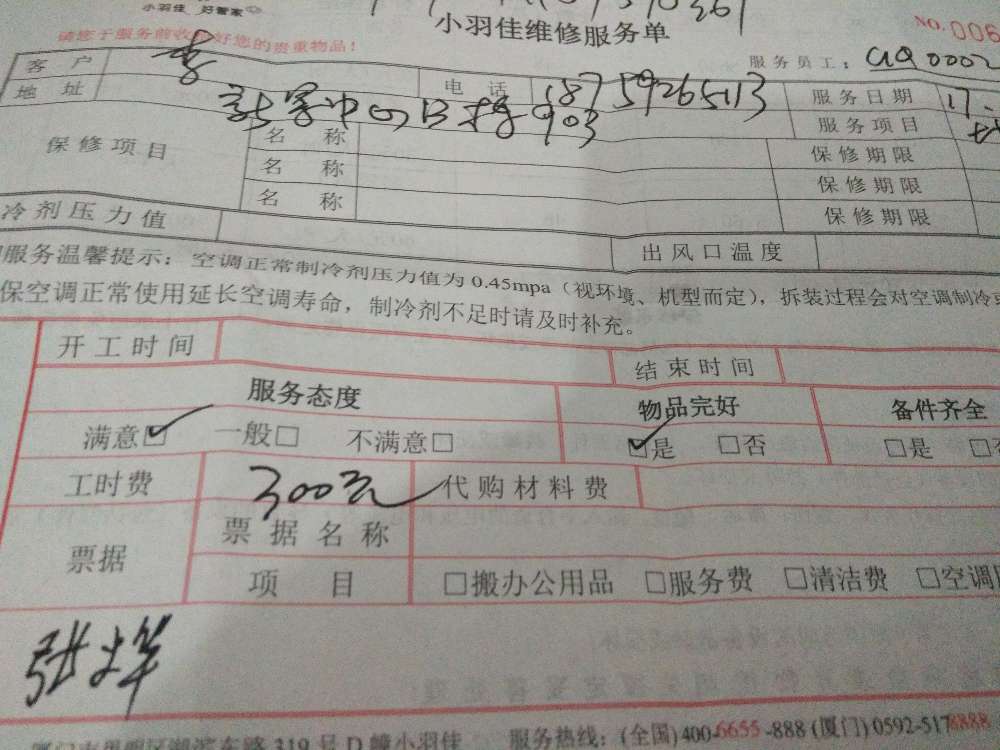 小羽佳 好管家
小羽佳维修服务单
NO.006
请您于服务前收好您的贵重物品！
服务员工：
客户 李 电话 18759265113 服务日期 17.
地址 903 服务项目
保修项目 名称 保修期限
名称 保修期限
名称 保修期限
冷剂压力值 出风口温度
服务温馨提示：空调正常制冷剂压力值为0.45mpa（视环境、机型而定），拆装过程会对空调制冷
保空调正常使用延长空调寿命，制冷剂不足时请及时补充。
开工时间 结束时间
服务态度 物品完好 备件齐全
满意☑ 一般□ 不满意□ ☑是 □否 □是
工时费 300元 代购材料费
票据 票据名称
项目 □搬办公用品 □服务费 □清洁费 □空调
319号D幢小羽佳 服务热线：(全国)400-6655-888(厦门)0592-5178888